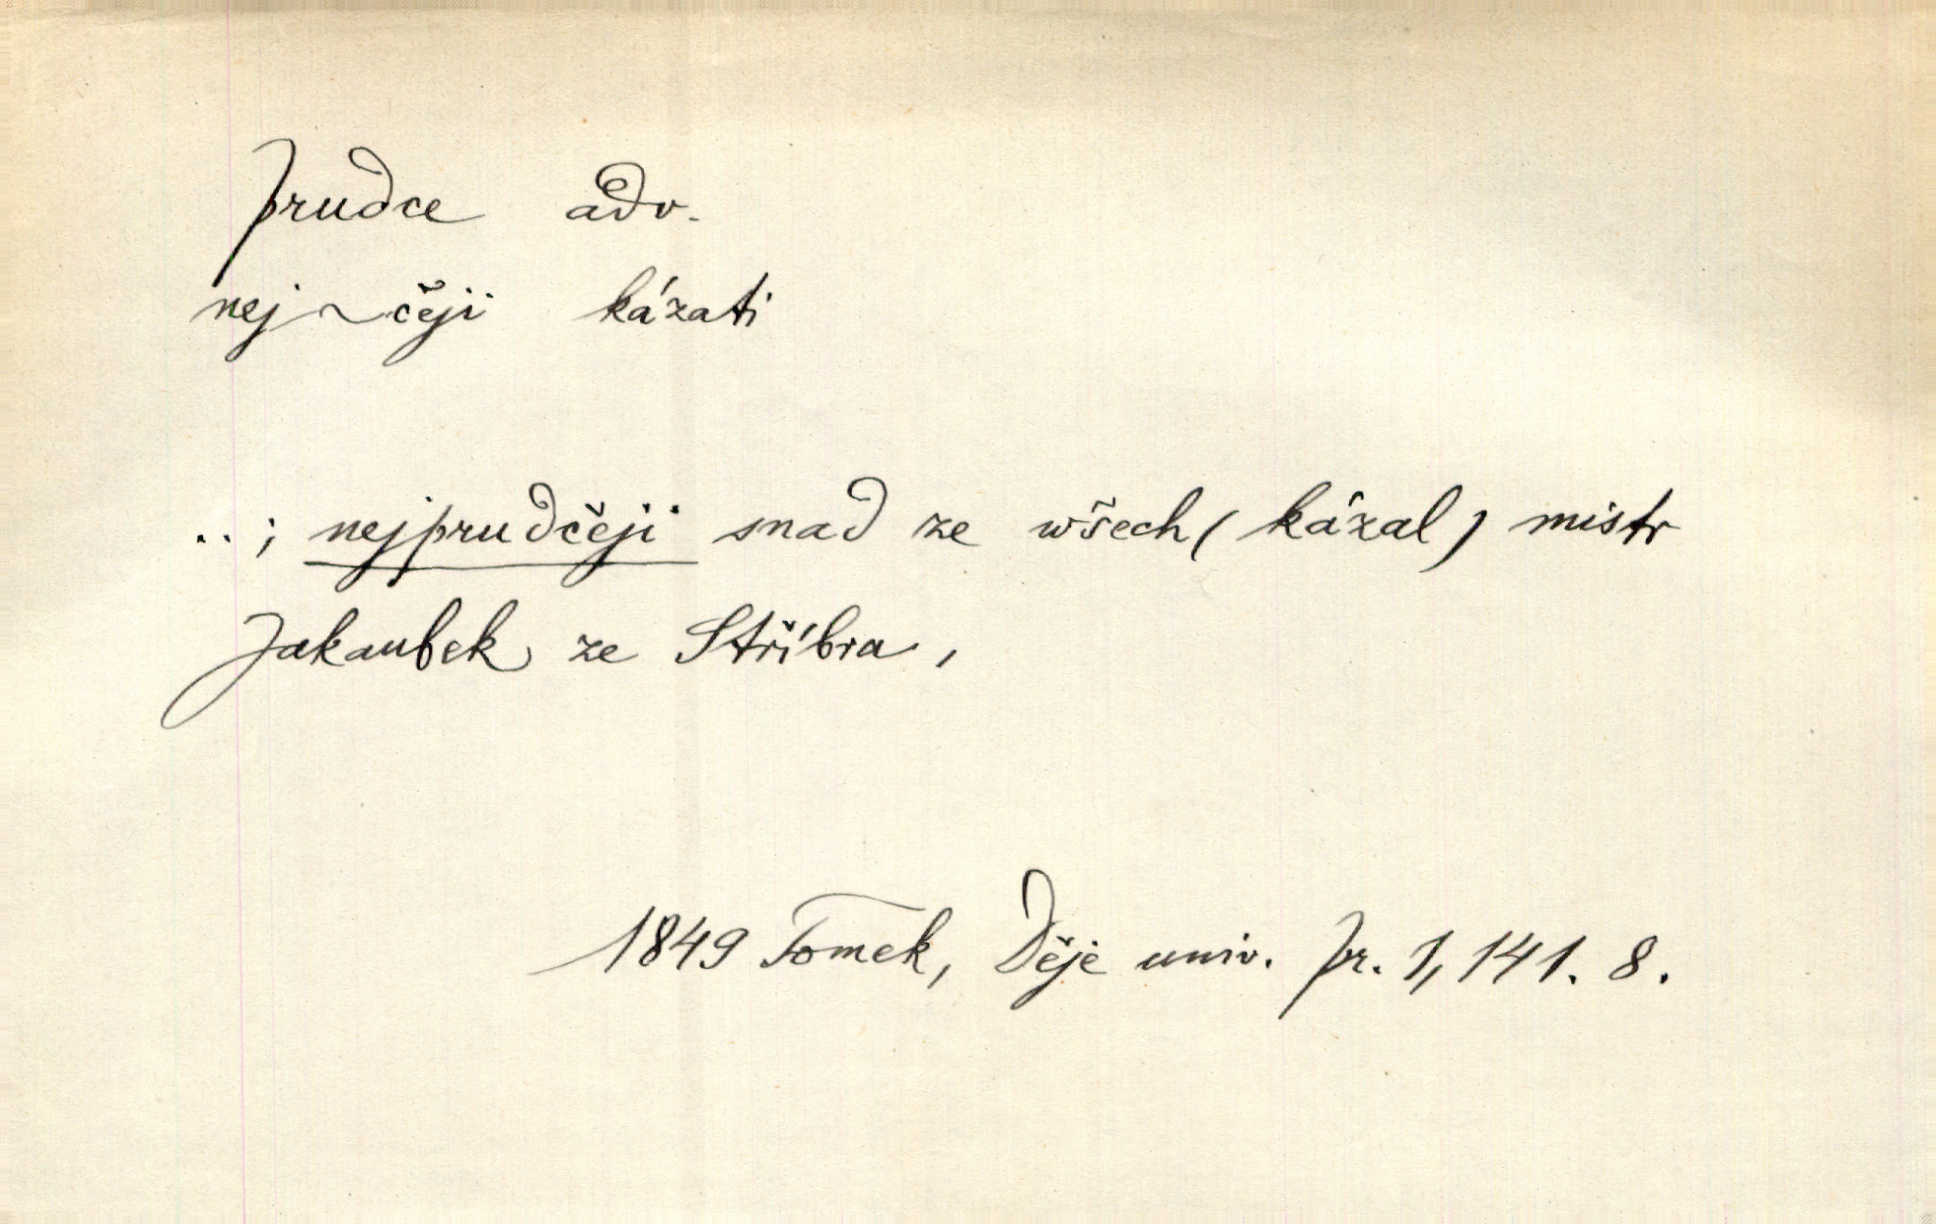 prudce adv.
nej~čeji kázati
..; nejprudčeji snad ze wšech (kázal) mistr
Jakaubek ze Stříbra,
1849 Tomek, Děje univ. pr. 1, 141. 8.